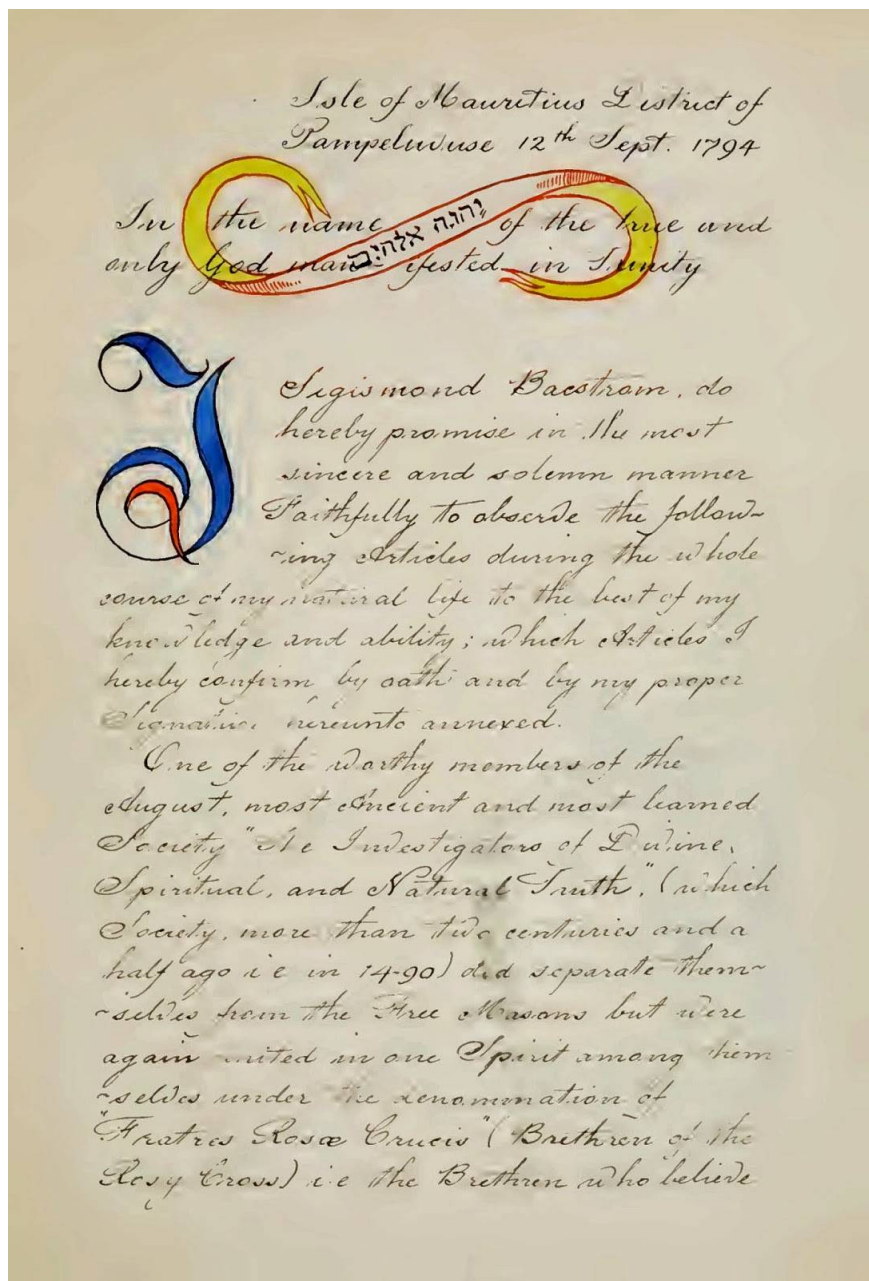 Isle of Mauritius District of
Pampeluvuse 12th Sept. 1794
In the name יהוה אלהים of the true and
only God manifested in Trinity
I Sigismond Bacstrom, do
hereby promise in the most
sincere and solemn manner
Faithfully to observe the follow~
~ing Articles during the whole
course of my natural life to the best of my
knowledge and ability; which Articles I
hereby confirm by oath and by my proper
Signature hereunto annexed.
One of the worthy members of the
August, most Ancient and most learned
Society "The Investigators of Divine,
Spiritual, and Natural Truth", (which
Society, more than two centuries and a
half ago i e in 14-90) did separate them~
~selves from the Free Masons but were
again united in one Spirit among them
~selves under the denomination of
"Fratres Rosæ Crucis" (Brethren of the
Rosy Cross) i e the Brethren who believe